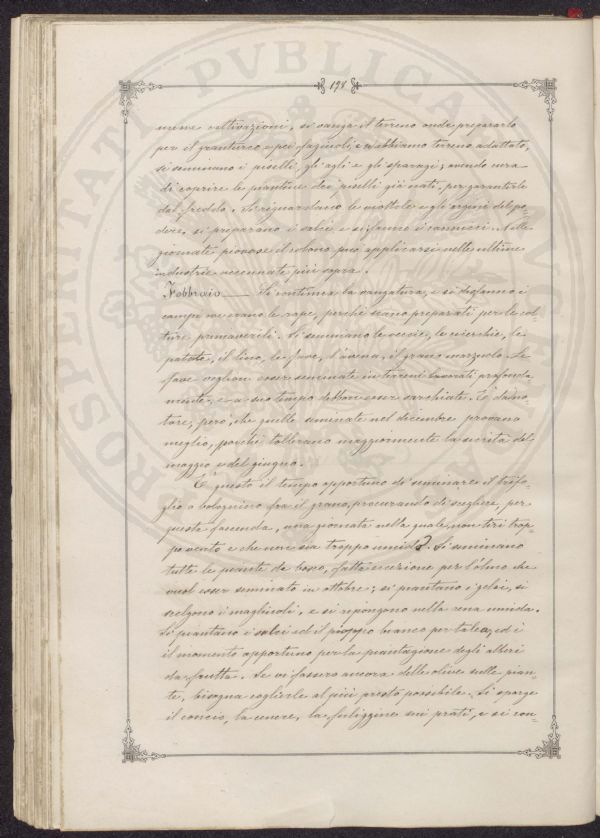 198.
mune coltivazioni, si vanga il terreno onde prepararlo
per il granturco e pei fagiuoli, e se abbiamo terreno adattato,
si seminano i piselli, gli agli e gli sparagi; avendo cura
di coprire le piantine dei piselli già nati, per garantirle
dal freddo. Si riguardano le viottole e gli argini del po-
dere, si preparano i salci e si fanno i cannicci. Nelle
giornate piovose il colono può applicarsi nelle ultime
industrie accennate più sopra.
Febbraio — Si continua la vangatura, e si disfanno i
campi ove erano le rape, perchè siano preparati per le col-
ture primaverili. Si seminano le veccie, le cicerchie, le
patate, il lino, le fave, l'avena, il grano marzuolo. Le
fave vogliono esser seminate in terreni lavorati profonda
mente, e a suo tempo debbon esser sarchiate. È da no-
tare, però, che quelle seminate nel dicembre provano
meglio, poichè tollerano maggiormente la siccità del
maggio e del giugno.
È questo il tempo opportuno di seminare il trifo-
glio o bolognino fra il grano, procurando di scegliere, per
questa faccenda, una giornata nella quale, non tiri trop-
po vento e che non sia troppo umida. Si seminano
tutte le piante da bosco, fatta eccezione per l'olmo che
vuol esser seminato in ottobre; si piantano i gelsi, si
scelgono i magliuoli, e si ripongono nella rena umida.
Si piantano i salci ed il pioppo bianco per talea, ed è
il momento opportuno per la piantagione degli alberi
da frutta. Se vi fossero ancora delle olive sulle pian-
te, bisogna coglierle al più presto possibile. Si sparge
il concio, la cenere, la fuliggine sui prati, e si con-
PROSPERITATI PVBLICAE AVGENDAE